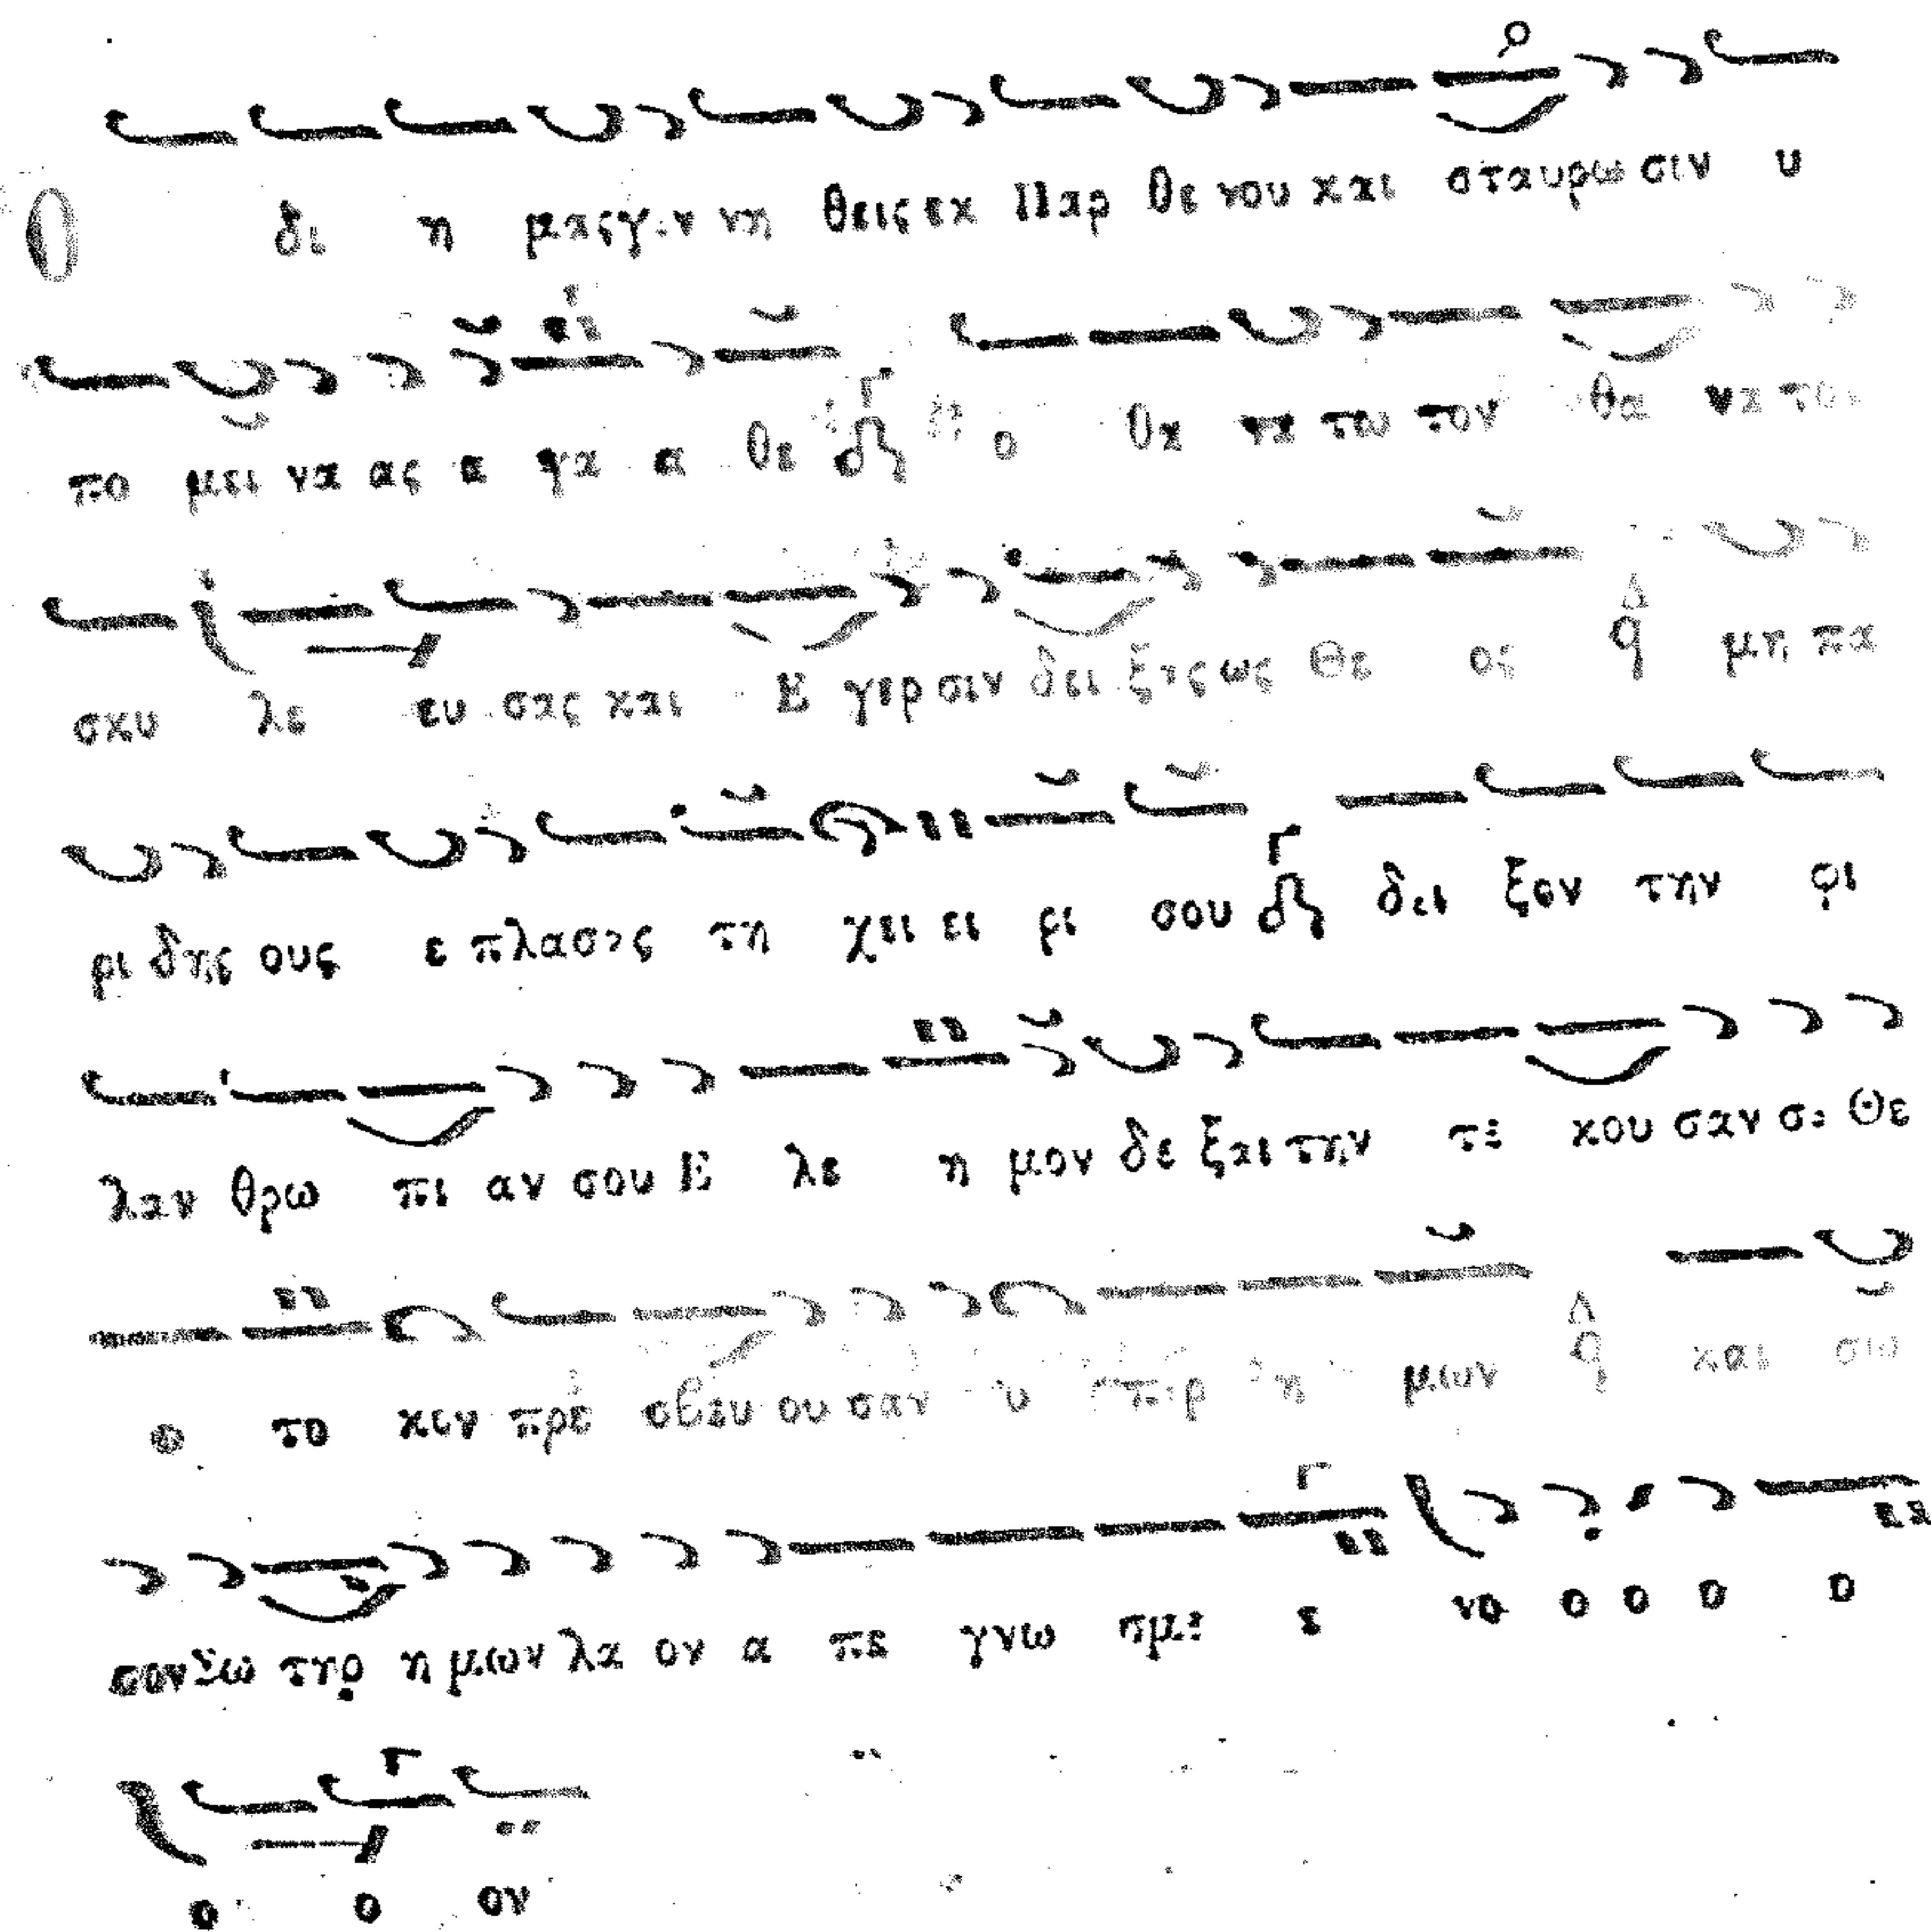 Ο δι η μας γεν νη θεις εκ Παρ θε νου και σταυρω σιν υ
πο μει να ας α γα α θε ο θα να τω τον θα να τον
σκυ λε ευ σας και Ε γερ σιν δει ξας ως Θε ος μη πα
ρι δης ους ε πλασας τη χει ει ρι σου δει ξον την φι
λαν θρω πι αν σου Ε λε η μον δε ξαι την τε κου σαν σε Θε
ο το κον πρε σβευ ου σαν υ περ η μων και σω
σον Σω τηρ η μων λα ον α πε γνω σμε ε νο ο ο ο ο
ο ο ον